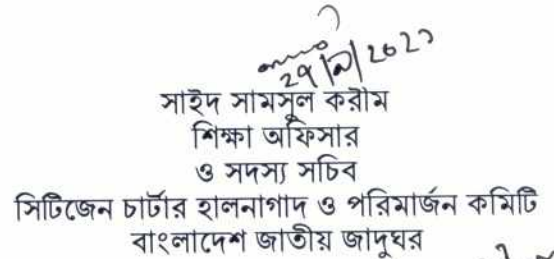 সাইদ সামসুল করীম
শিক্ষা অফিসার
ও সদস্য সচিব
সিটিজেন চার্টার হালনাগাদ ও পরিমার্জন কমিটি
বাংলাদেশ জাতীয় জাদুঘর